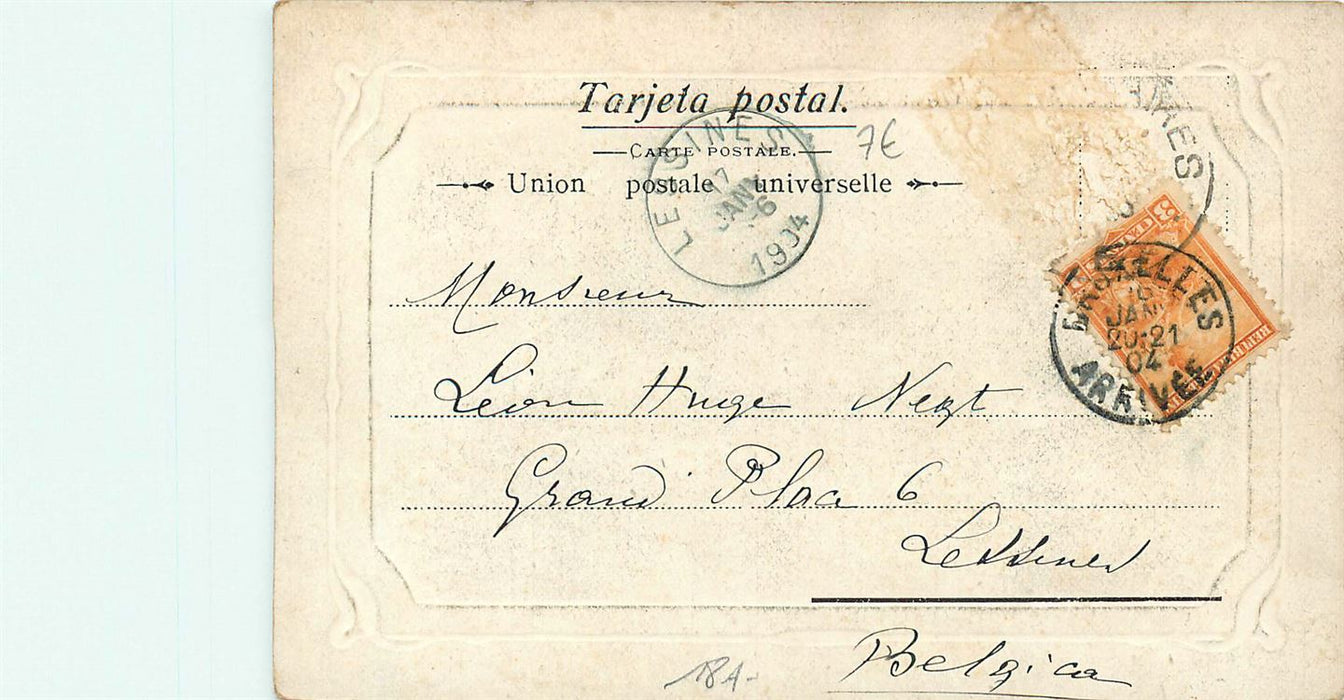 Tarjeta postal.
CARTE POSTALE.
Union postale universelle
7€
LESSINES
17
JANV
6
1904
3 CENT
BRUXELLES
JANV
20-21
04
ARRIVÉE
Monsieur
Léon Huge
Grand Place 6
Lessines
Belgica